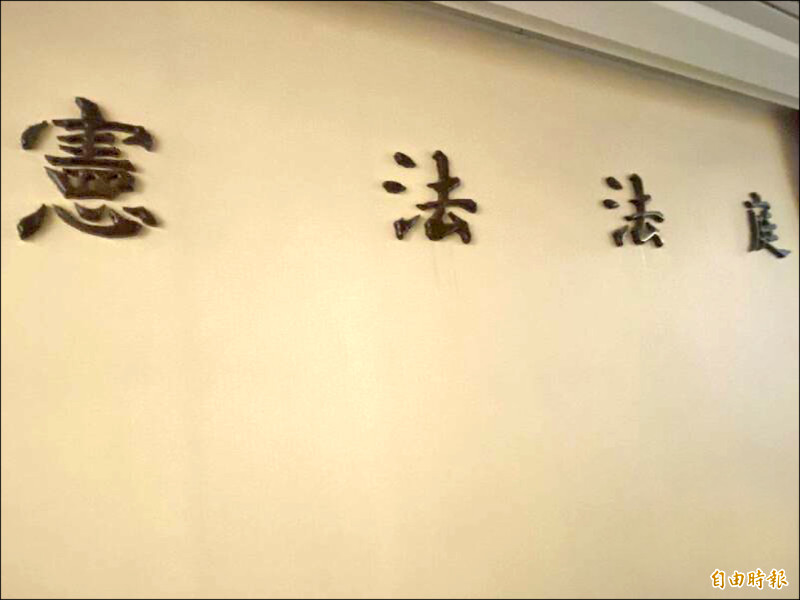 憲法法庭
自由時報